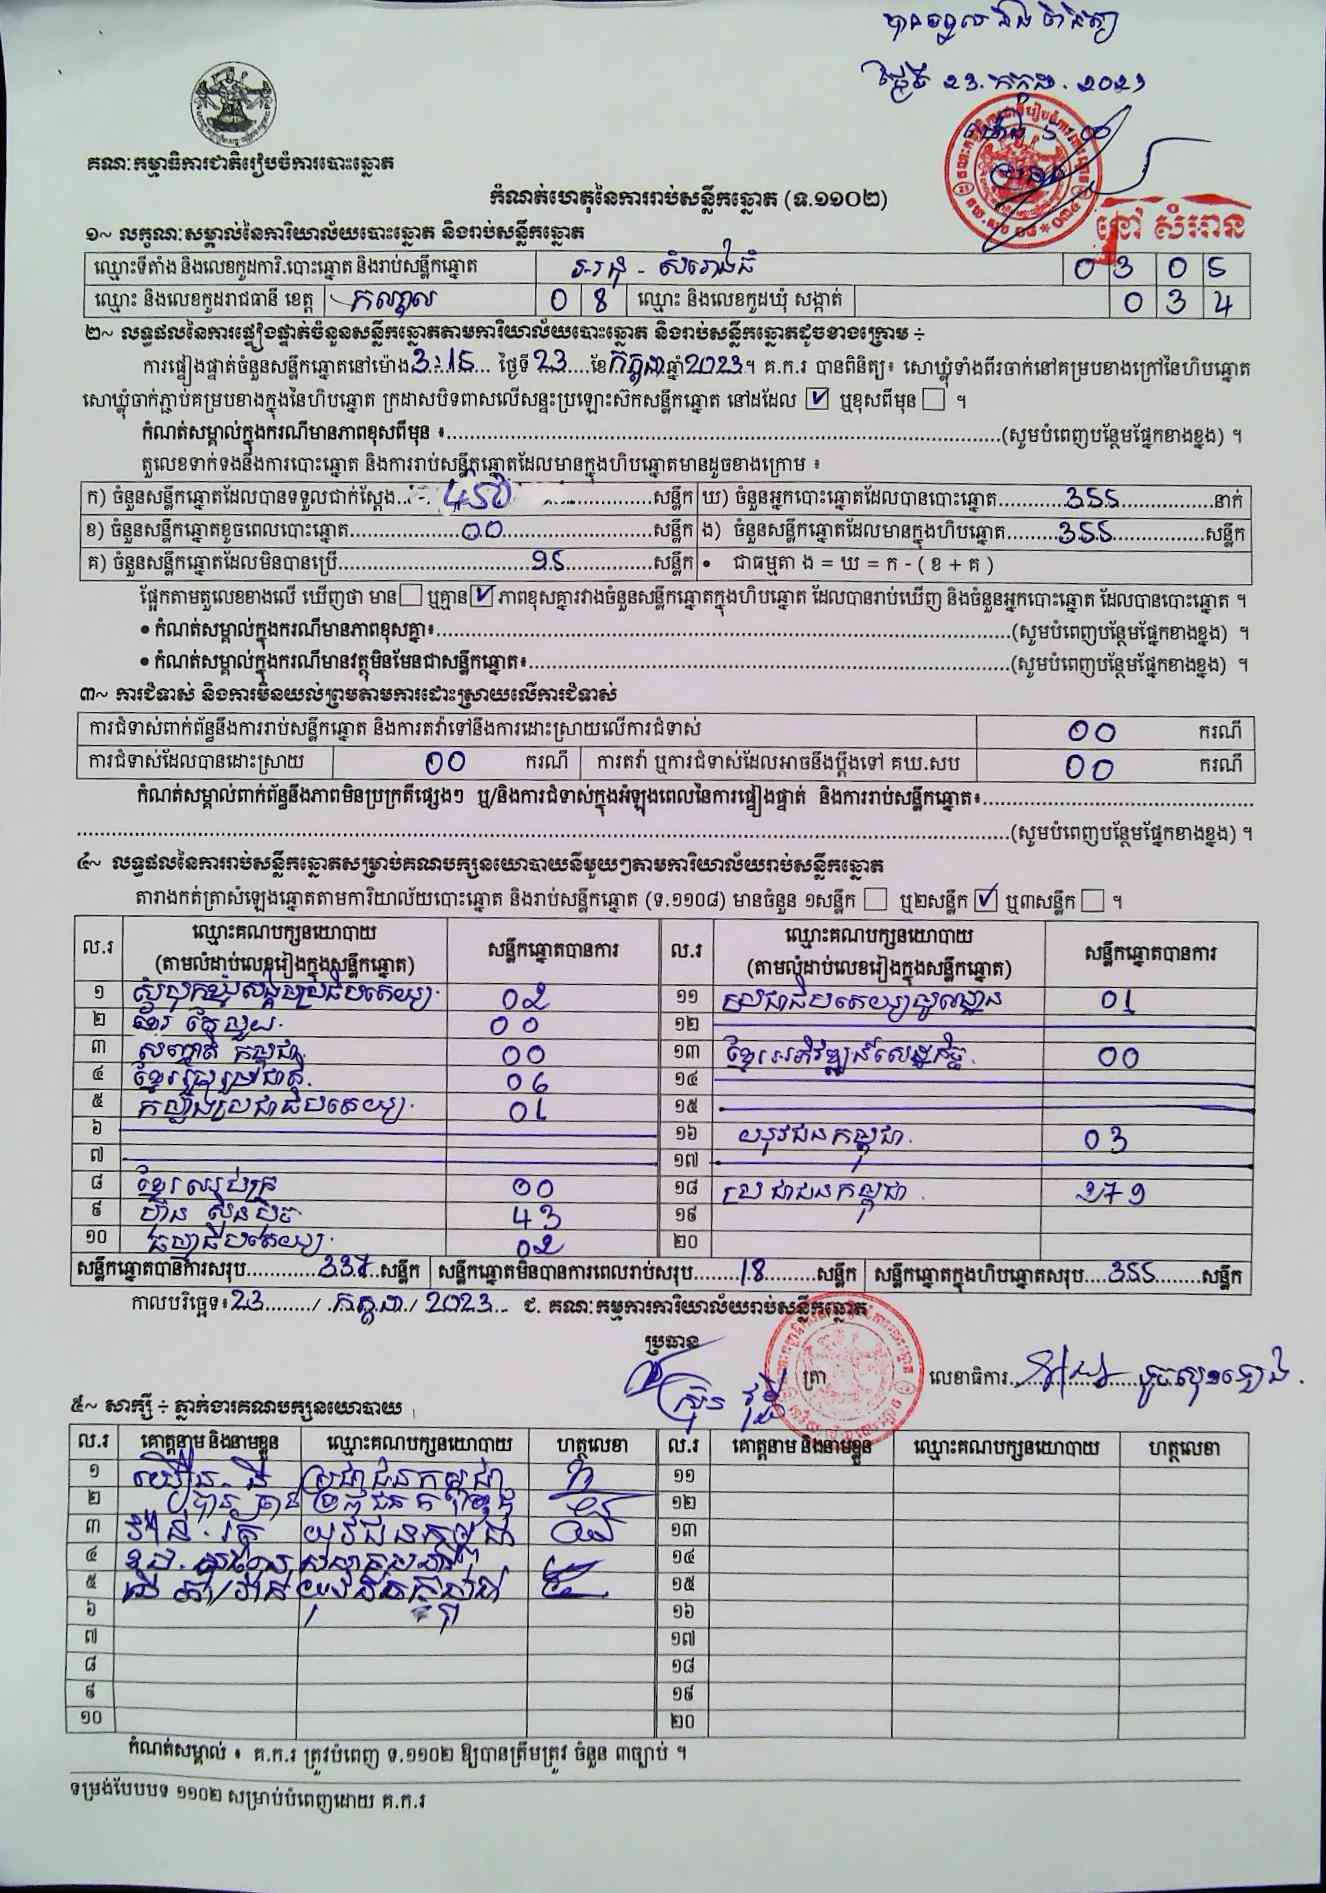 គណៈកម្មាធិការជាតិរៀបចំការបោះឆ្នោត
កំណត់ហេតុនៃការរាប់សន្លឹកឆ្នោត (ទ.១១០២)
១~ លក្ខណៈសម្គាល់នៃការិយាល័យបោះឆ្នោត និងរាប់សន្លឹកឆ្នោត
ឈ្មោះទីតាំង និងលេខកូដការិ.បោះឆ្នោត និងរាប់សន្លឹកឆ្នោត 0 3 0 5
ឈ្មោះ និងលេខកូដរាជធានី ខេត្ត កណ្តាល 0 8 ឈ្មោះ និងលេខកូដឃុំ សង្កាត់ 0 3 4
២~ លទ្ធផលនៃការផ្ទៀងផ្ទាត់ចំនួនសន្លឹកឆ្នោតតាមការិយាល័យបោះឆ្នោត និងរាប់សន្លឹកឆ្នោតដូចខាងក្រោម ÷
ការផ្ទៀងផ្ទាត់ចំនួនសន្លឹកឆ្នោតនៅម៉ោង 3:15 ថ្ងៃទី 23 ខែ កក្កដា ឆ្នាំ 2023។ គ.ក.រ បានពិនិត្យ៖ សោឃ្លុំទាំងពីរចាក់នៅគម្របខាងក្រៅនៃហិបឆ្នោត
សោឃ្លុំចាក់ភ្ជាប់គម្របខាងក្នុងនៃហិបឆ្នោត ក្រដាសបិទពាសលើសន្ទះប្រឡោះស៊កសន្លឹកឆ្នោត នៅដដែល ☑ ឬខុសពីមុន ☐ ។
កំណត់សម្គាល់ក្នុងករណីមានភាពខុសពីមុន ៖ (សូមបំពេញបន្ថែមផ្នែកខាងខ្នង) ។
តួលេខទាក់ទងនឹងការបោះឆ្នោត និងការរាប់សន្លឹកឆ្នោតដែលមានក្នុងហិបឆ្នោតមានដូចខាងក្រោម ៖
ក) ចំនួនសន្លឹកឆ្នោតដែលបានទទួលជាក់ស្តែង 450 សន្លឹក ឃ) ចំនួនអ្នកបោះឆ្នោតដែលបានបោះឆ្នោត 355 នាក់
ខ) ចំនួនសន្លឹកឆ្នោតខូចពេលបោះឆ្នោត 00 សន្លឹក ង) ចំនួនសន្លឹកឆ្នោតដែលមានក្នុងហិបឆ្នោត 355 សន្លឹក
គ) ចំនួនសន្លឹកឆ្នោតដែលមិនបានប្រើ 95 សន្លឹក • ជាធម្មតា ង = ឃ = ក - ( ខ + គ )
ផ្អែកតាមតួលេខខាងលើ ឃើញថា មាន ☐ ឬគ្មាន ☑ ភាពខុសគ្នារវាងចំនួនសន្លឹកឆ្នោតក្នុងហិបឆ្នោត ដែលបានរាប់ឃើញ និងចំនួនអ្នកបោះឆ្នោត ដែលបានបោះឆ្នោត ។
• កំណត់សម្គាល់ក្នុងករណីមានភាពខុសគ្នា៖ (សូមបំពេញបន្ថែមផ្នែកខាងខ្នង) ។
• កំណត់សម្គាល់ក្នុងករណីមានវត្ថុមិនមែនជាសន្លឹកឆ្នោត៖ (សូមបំពេញបន្ថែមផ្នែកខាងខ្នង) ។
៣~ ការជំទាស់ និងការមិនយល់ព្រមតាមការដោះស្រាយលើការជំទាស់
ការជំទាស់ពាក់ព័ន្ធនឹងការរាប់សន្លឹកឆ្នោត និងការតវ៉ាទៅនឹងការដោះស្រាយលើការជំទាស់ 00 ករណី
ការជំទាស់ដែលបានដោះស្រាយ 00 ករណី ការតវ៉ា ឬការជំទាស់ដែលអាចនឹងប្តឹងទៅ គឃ.សប 00 ករណី
កំណត់សម្គាល់ពាក់ព័ន្ធនឹងភាពមិនប្រក្រតីផ្សេងៗ ឬ/និងការជំទាស់ក្នុងអំឡុងពេលនៃការផ្ទៀងផ្ទាត់ និងការរាប់សន្លឹកឆ្នោត៖
(សូមបំពេញបន្ថែមផ្នែកខាងខ្នង) ។
៤~ លទ្ធផលនៃការរាប់សន្លឹកឆ្នោតសម្រាប់គណបក្សនយោបាយនីមួយៗតាមការិយាល័យរាប់សន្លឹកឆ្នោត
តារាងកត់ត្រាសំឡេងឆ្នោតតាមការិយាល័យបោះឆ្នោត និងរាប់សន្លឹកឆ្នោត (ទ.១១០៨) មានចំនួន ១សន្លឹក ☐ ឬ២សន្លឹក ☑ ឬ៣សន្លឹក ☐ ។
ល.រ ឈ្មោះគណបក្សនយោបាយ (តាមលំដាប់លេខរៀងក្នុងសន្លឹកឆ្នោត) សន្លឹកឆ្នោតបានការ ល.រ ឈ្មោះគណបក្សនយោបាយ (តាមលំដាប់លេខរៀងក្នុងសន្លឹកឆ្នោត) សន្លឹកឆ្នោតបានការ
១ សំបុកឃ្មុំសង្គមប្រជាធិបតេយ្យ 02 ១១ ប្រជាធិបតេយ្យមូលដ្ឋាន 01
២ 00 ១២
៣ សញ្ជាតិ កម្ពុជា 00 ១៣ ខ្មែរអភិវឌ្ឍន៍សេដ្ឋកិច្ច 00
៤ ខ្មែររួបរួមជាតិ 06 ១៤
៥ កម្លាំងប្រជាធិបតេយ្យ 01 ១៥
៦ ១៦ យុវជនកម្ពុជា 03
៧ ១៧
៨ ខ្មែរឈប់ក្រ 00 ១៨ ប្រជាជនកម្ពុជា 279
៩ ហ៊្វុនស៊ិនប៉ិច 43 ១៩
១០ ធម្មាធិបតេយ្យ 02 ២០
សន្លឹកឆ្នោតបានការសរុប 337 សន្លឹក សន្លឹកឆ្នោតមិនបានការពេលរាប់សរុប 18 សន្លឹក សន្លឹកឆ្នោតក្នុងហិបឆ្នោតសរុប 355 សន្លឹក
កាលបរិច្ឆេទ៖ 23 / កក្កដា / 2023 ជ. គណៈកម្មការការិយាល័យរាប់សន្លឹកឆ្នោត
ប្រធាន
ត្រា លេខាធិការ
៥~ សាក្សី ÷ ភ្នាក់ងារគណបក្សនយោបាយ
ល.រ គោត្តនាម និងនាមខ្លួន ឈ្មោះគណបក្សនយោបាយ ហត្ថលេខា ល.រ គោត្តនាម និងនាមខ្លួន ឈ្មោះគណបក្សនយោបាយ ហត្ថលេខា
១ ប្រជាជនកម្ពុជា ១១
២ ប្រជាជនកម្ពុជា ១២
៣ យុវជនកម្ពុជា ១៣
៤ ១៤
៥ យុវជនកម្ពុជា ១៥
៦ ១៦
៧ ១៧
៨ ១៨
៩ ១៩
១០ ២០
កំណត់សម្គាល់ ៖ គ.ក.រ ត្រូវបំពេញ ទ.១១០២ ឱ្យបានត្រឹមត្រូវ ចំនួន ៣ច្បាប់ ។
ទម្រង់បែបបទ ១១០២ សម្រាប់បំពេញដោយ គ.ក.រ